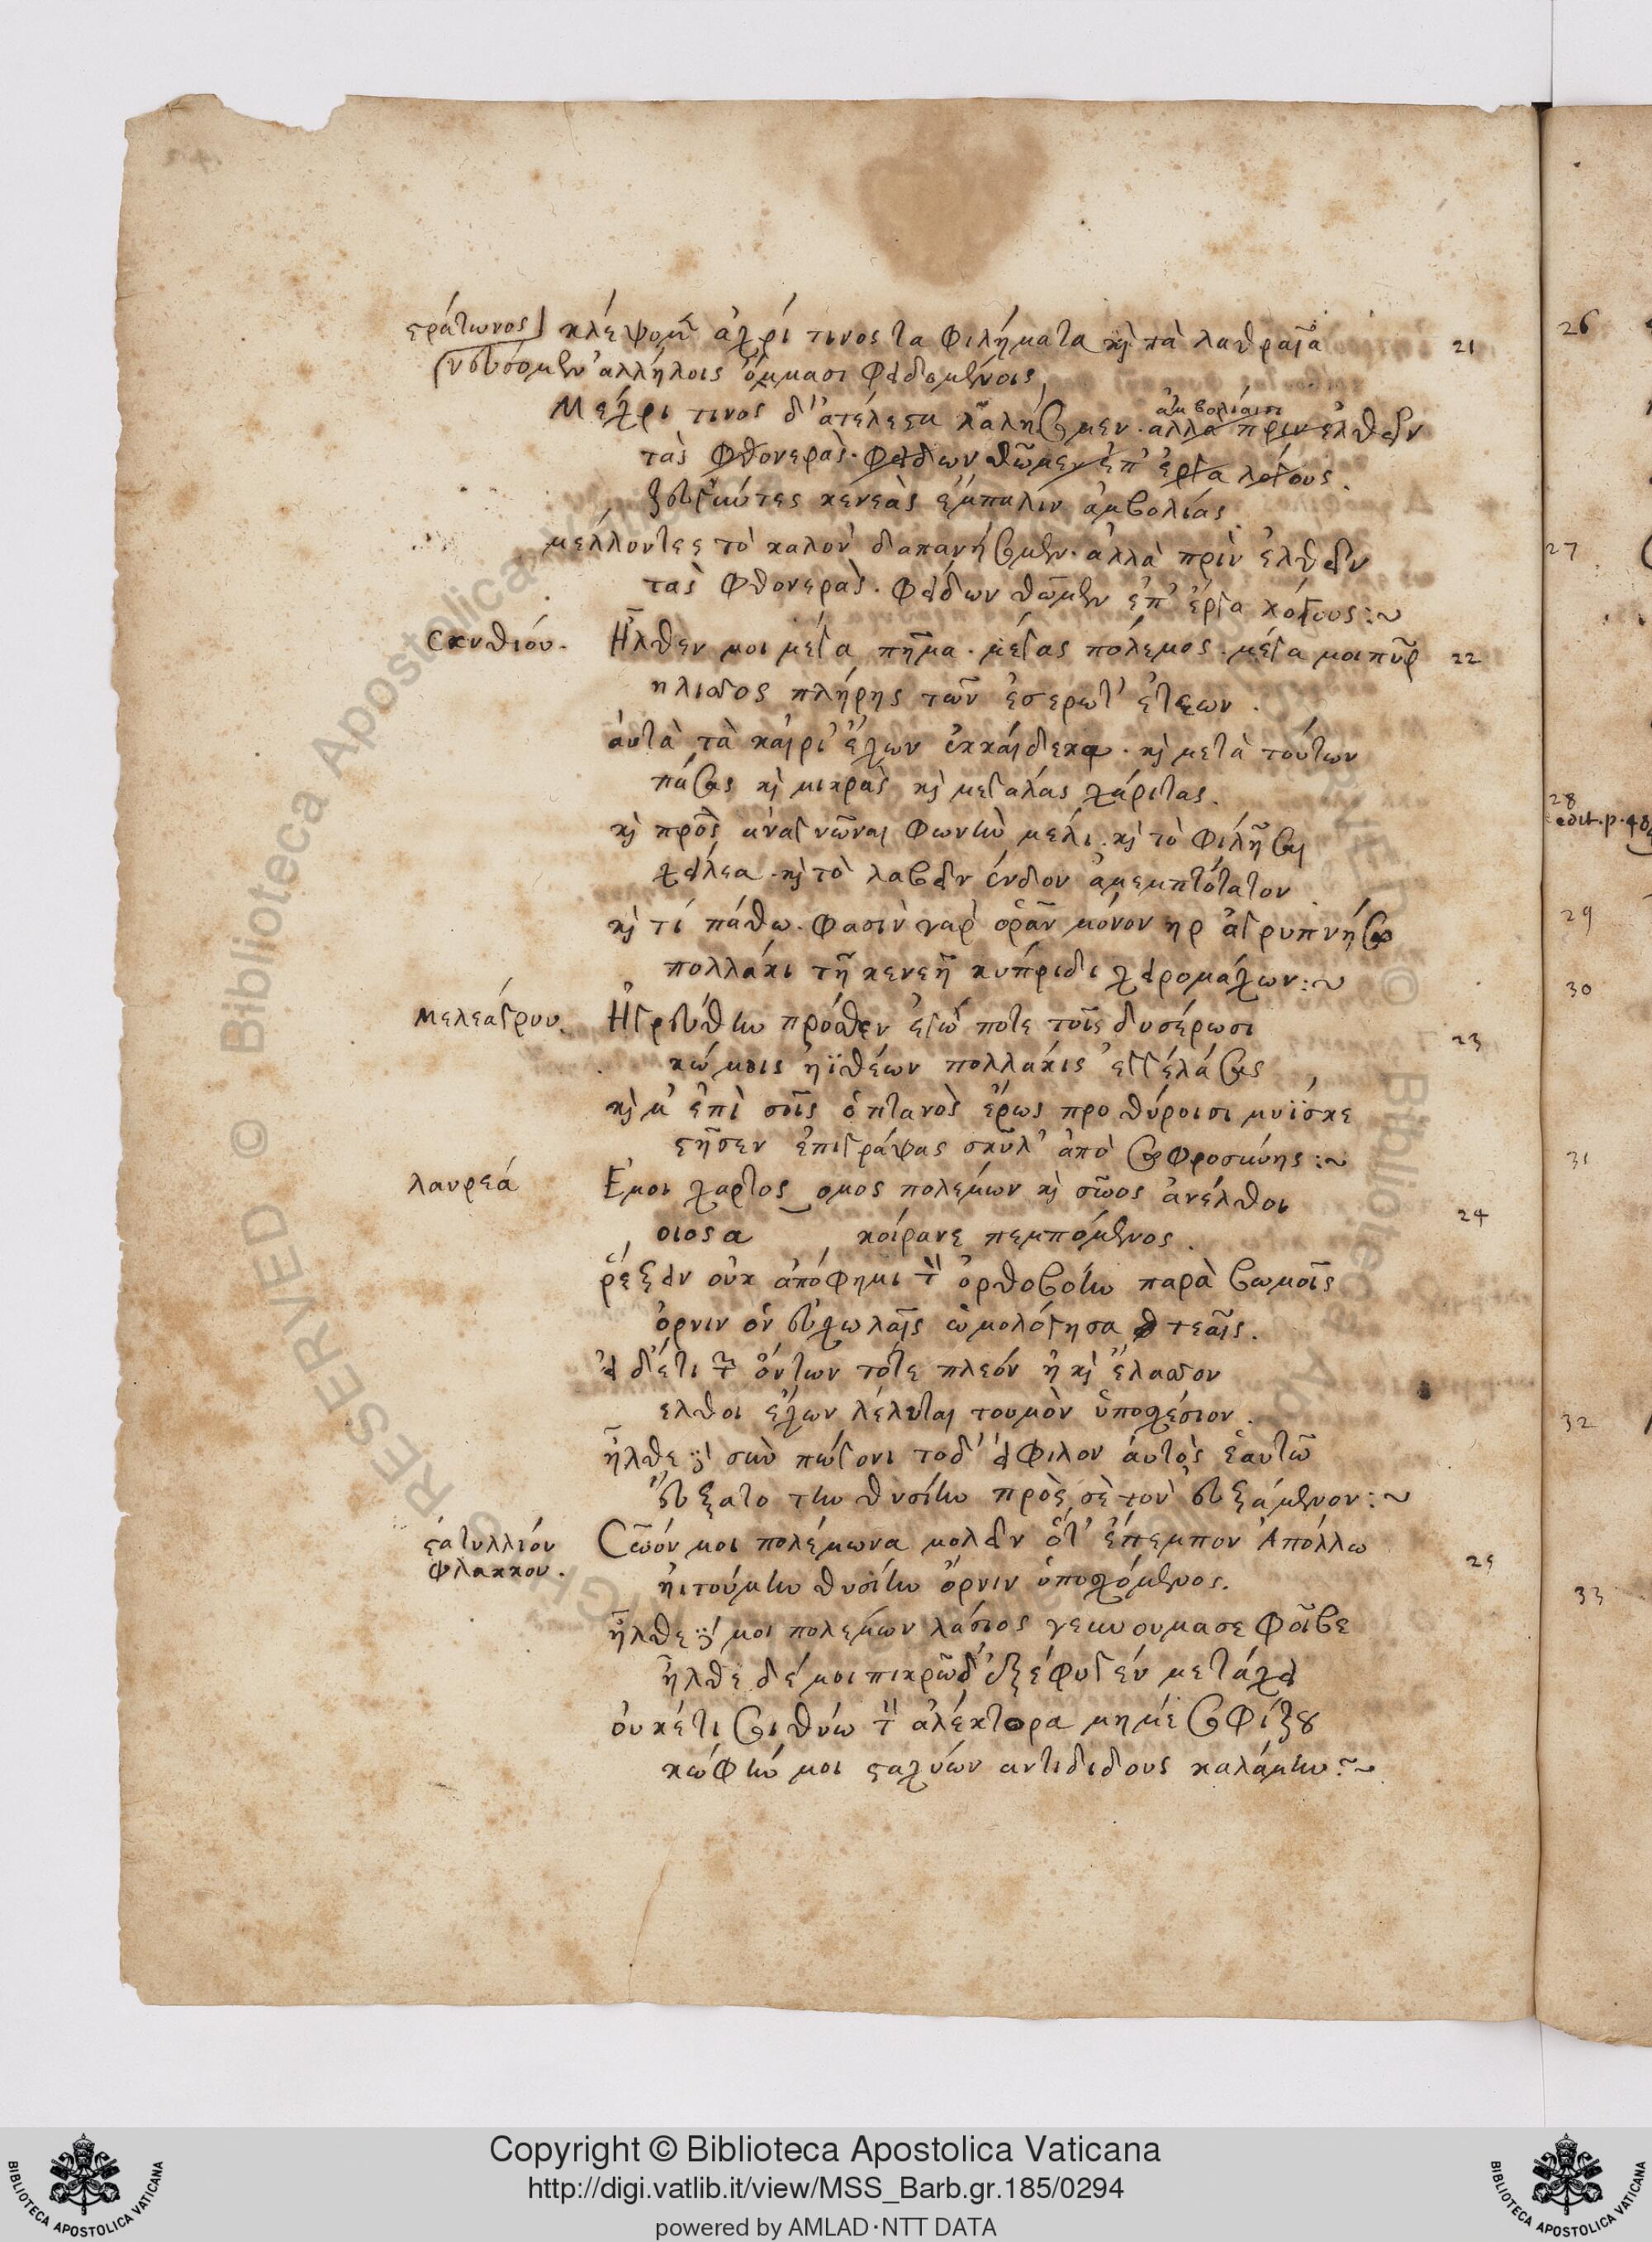 στράτωνος κλέψομεν ἄχρι τινος τα φιλήματα καὶ τὰ λαθραῖα 21
νεύσομεν ἀλλήλοις ὄμμασι φειδομένοις
Μέχρι τινος δ' ἀτέλεστα λαλήσομεν. ἀλλὰ πριν ἐλθεῖν
τὰς φθονερὰς. φειδων θῶμεν ἐπ' ἔργα λόγους.
ζευγνύντες κενεὰς ἔμπαλιν ἀμβολίας.
μέλλοντες τὸ καλὸν δαπανήσομεν. ἀλλὰ πρὶν ἐλθεῖν
τὰς φθονερὰς. φείδων θῶμεν ἐπ' ἔργα λόγους :~
Σκυθίου. Ἦλθεν μοι μέγα πῆμα. μέγας πόλεμος. μέγα μοι πῦρ 22
ηλισσος πλήρης τῶν ἐς ερωτ' ἐτεων.
ἀυτὰ τὰ καίρι' ἔχων ἑκκαίδεκα. καὶ μετὰ τούτων
πάσας καὶ μικρὰς καὶ μεγάλας χάριτας.
καὶ πρὸς ἀναγνῶναι φωνὴν μέλι. καὶ τὸ φιλῆσαι
χείλεα. καὶ τὸ λαβεῖν ἔνδον ἀμεμπτότατον
καὶ τί πάθω. φασὶν γαρ ὁρᾶν μόνον ηρ ἀγρυπνήσω
πολλάκι τῆ κενεῆ κυπριδι χειρομαχων :~
Μελεάγρου. Ἠγρεύθην πρόσθεν ἐγώ ποτε τοῖς δυσέρωσι 23
κώμοις ἠϊθέων πολλάκις ἐγγελάσας
καὶ μ' ἐπὶ σοῖς ὁ πτανὸς ἔρως προθύροισι μυΐσκε
στῆσεν ἐπιγράψας σκῦλ' ἀπὸ σωφροσύνης :~
λαυρεά Εμοι χαρτος ομος πολέμων καὶ σῶος ἀνέλθοι 24
οιοσα κοίρανε πεμπόμενος.
ῥέξειν οὐκ ἀπόφημι τὸν ὀρθοβόην παρὰ βωμοῖς
ὄρνιν ὃν εὐχωλαῖς ὡμολόγησα τεαῖς.
εἰ δ' ἔτι τῶν ὄντων τότε πλεόν ἢ καὶ ἔλασσον
ελθοι ἔχων λέλυται τουμὸν ὑποχέσιον.
ἦλθε δὲ σὺν πώγονι τοδ' εἰ φίλον ἀυτὸς ἑαυτῶ
εὔξατο την θυσίην πρὸς σὲ τον εὐξάμενον :~
στατυλλιου φλακκου. Σῶόν μοι πολέμωνα μολεῖν ὅτ' ἔπεμπον Απολλω 25
ἠιτούμην θυσίην ὄρνιν ὑποχόμενος.
ἦλθε δὲ μοι πολέμων λάσιος γενυουμασε φοῖβε
ἦλθε δέ μοι πικρῶδ' ἐξέφυγέν με τάχει
ὀυκέτι σοι θύω τὸν ἀλέκτορα μη μέ σοφίζου
κώφην μοι σταχύων αντιδιδους καλάμην :~
26
27
28
edit. p. 48
29
30
31
32
33
© Biblioteca Apostolica Vaticana
Copyright © Biblioteca Apostolica Vaticana
http://digi.vatlib.it/view/MSS_Barb.gr.185/0294
powered by AMLAD·NTT DATA
BIBLIOTECA APOSTOLICA VATICANA
BIBLIOTECA APOSTOLICA VATICANA